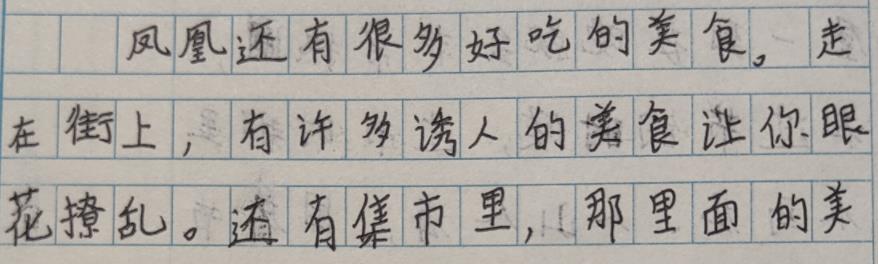 凤凰还有很多好吃的美食。走
在街上，有许多诱人的美食让你眼
花撩乱。还有集市里，那里面的美